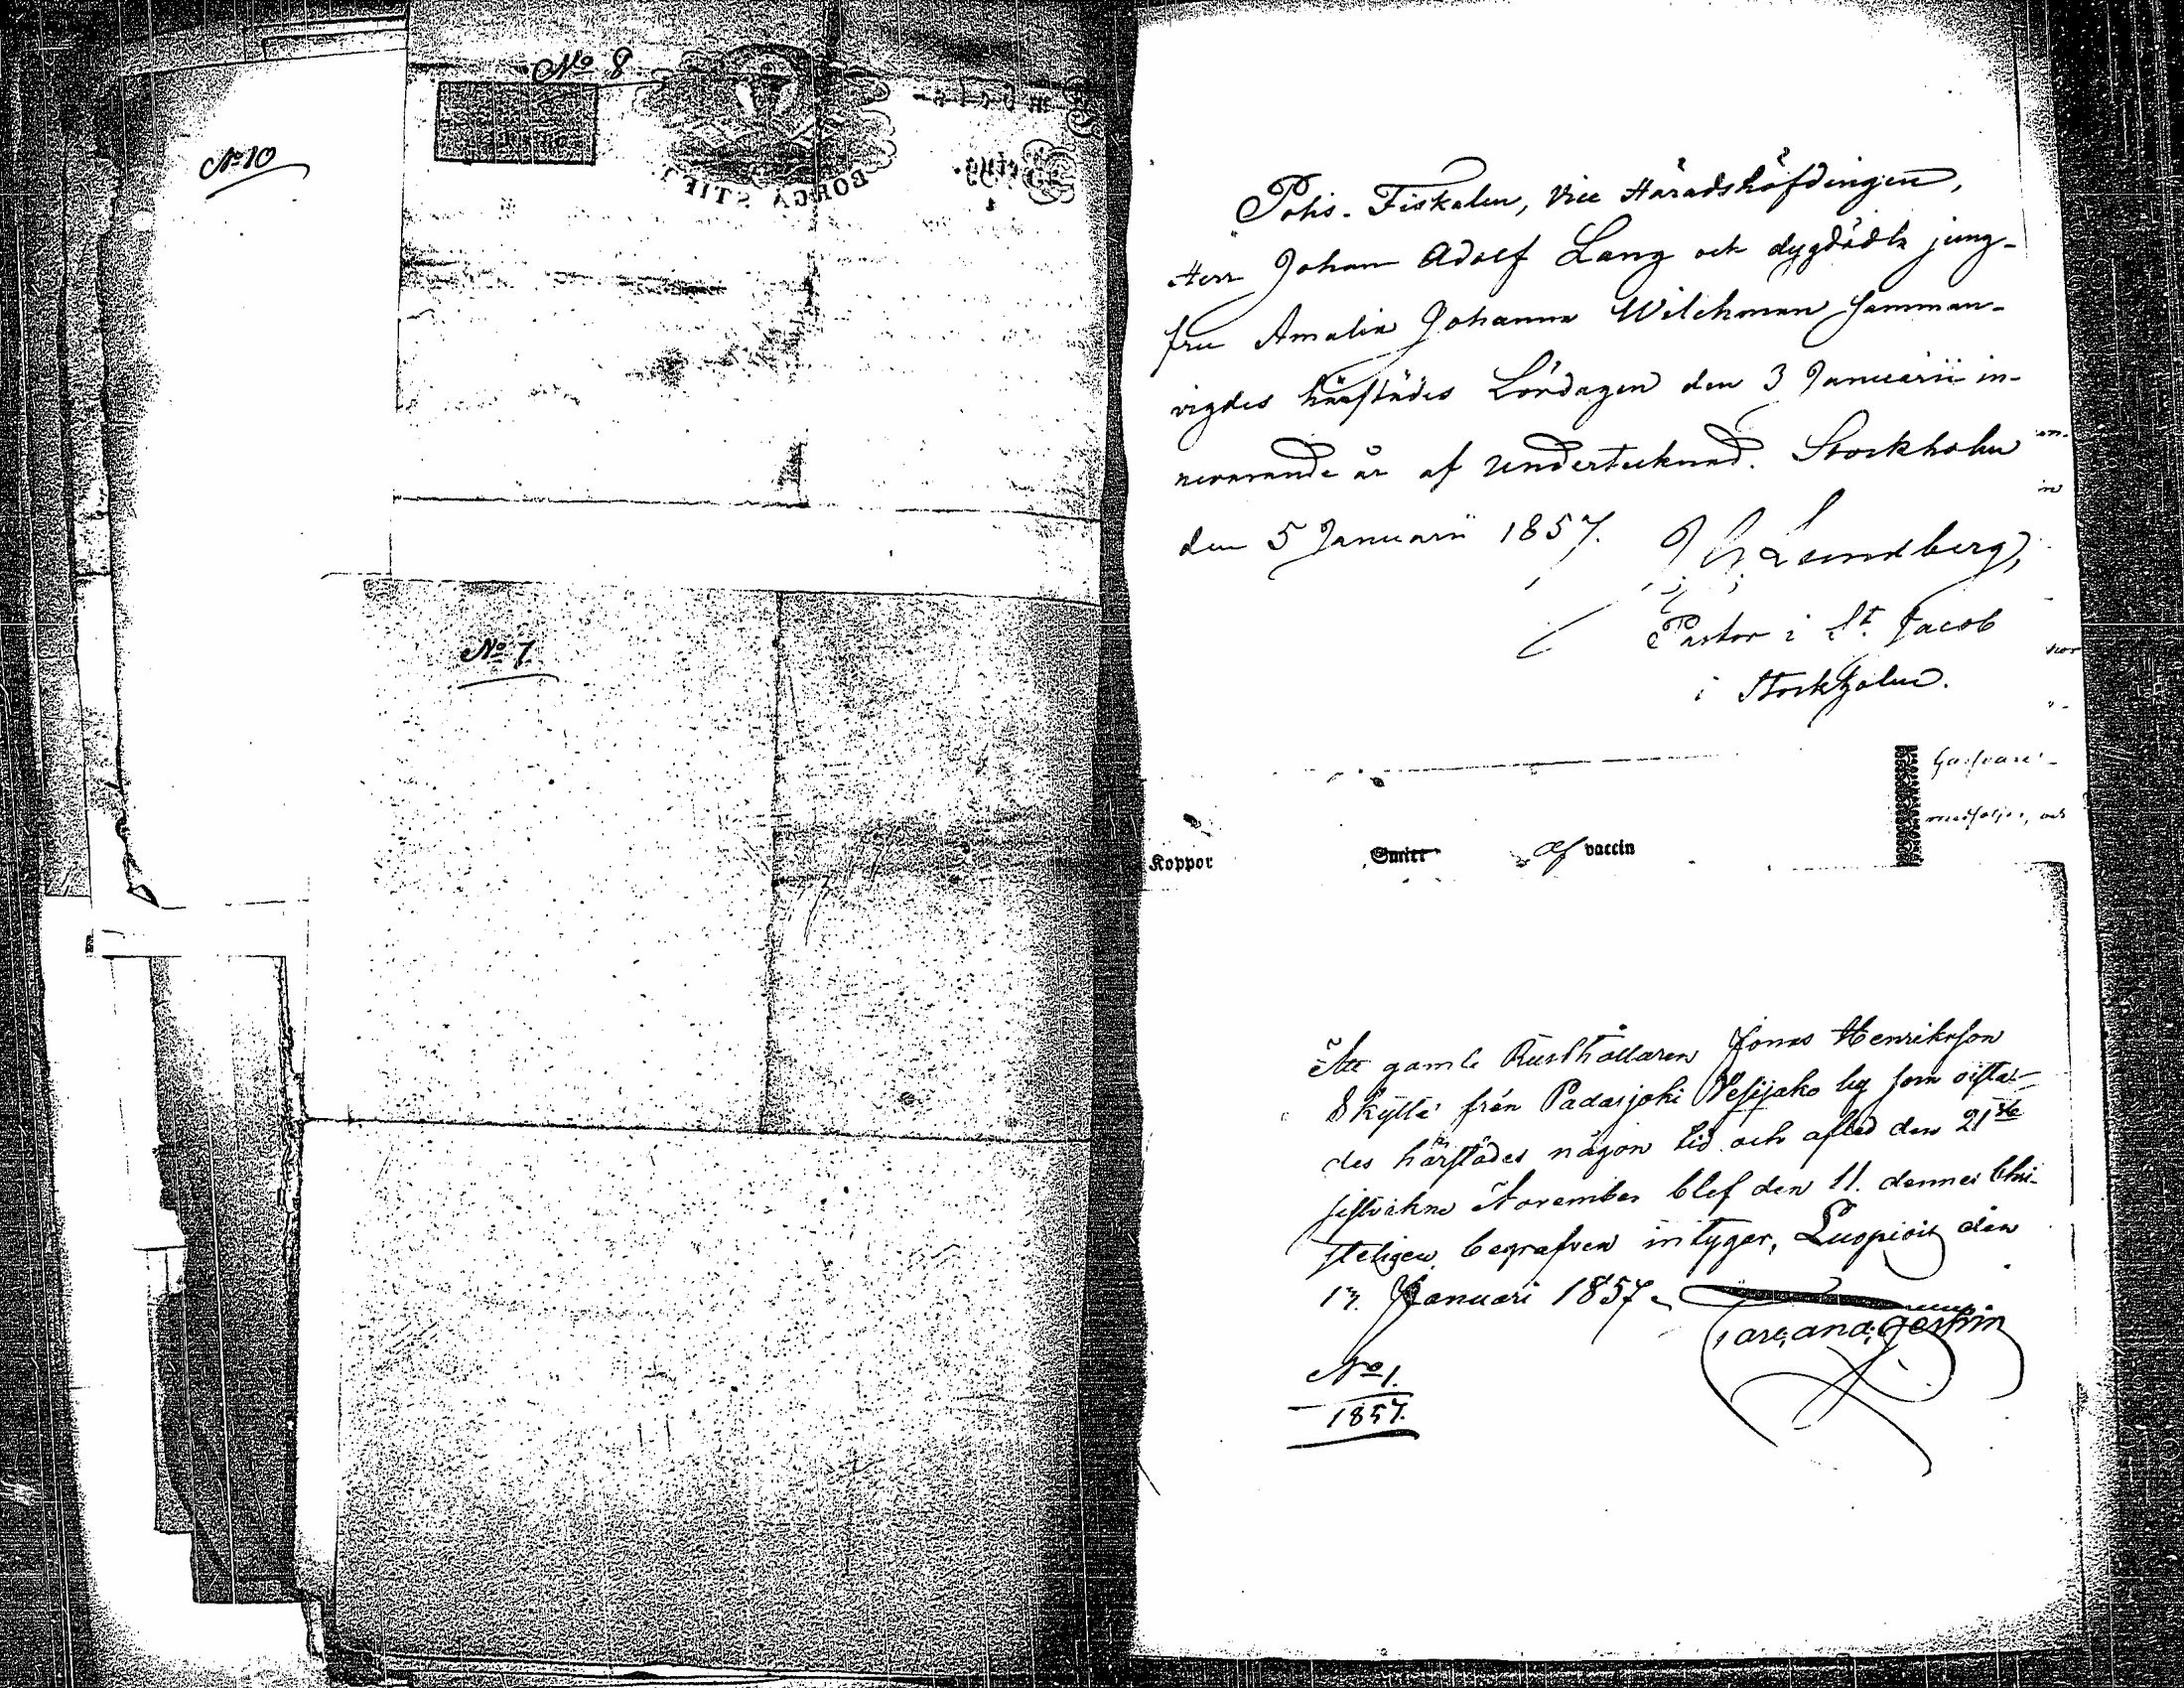 No 10
No 8
BORGÅ STIFT
No 7
Polis-Fiskalen, Vice Häradshöfdingen,
Herr Johan Adolf Lang och dygdädla jung-
fru Amalia Johanna Wilckman samman-
vigdes härstädes Lördagen den 3 Januarii in-
nevarande år af undertecknad. Stockholm
den 5 Januarii 1857.
Lundberg,
Pastor i St. Jacob
i Stockholm.
medföljer, och
Koppor Smitt af vaccin
Att gamle Rusthållaren Jonas Henriksson
Skyttä från Padasjoki Vesijako by som vista-
des härstädes någon tid och afled den 21ste
sistvikne November blef den 11. dennes Chri-
steligen begrafven intygar, Luopiois den
13. Januari 1857.
No 1.
1857.